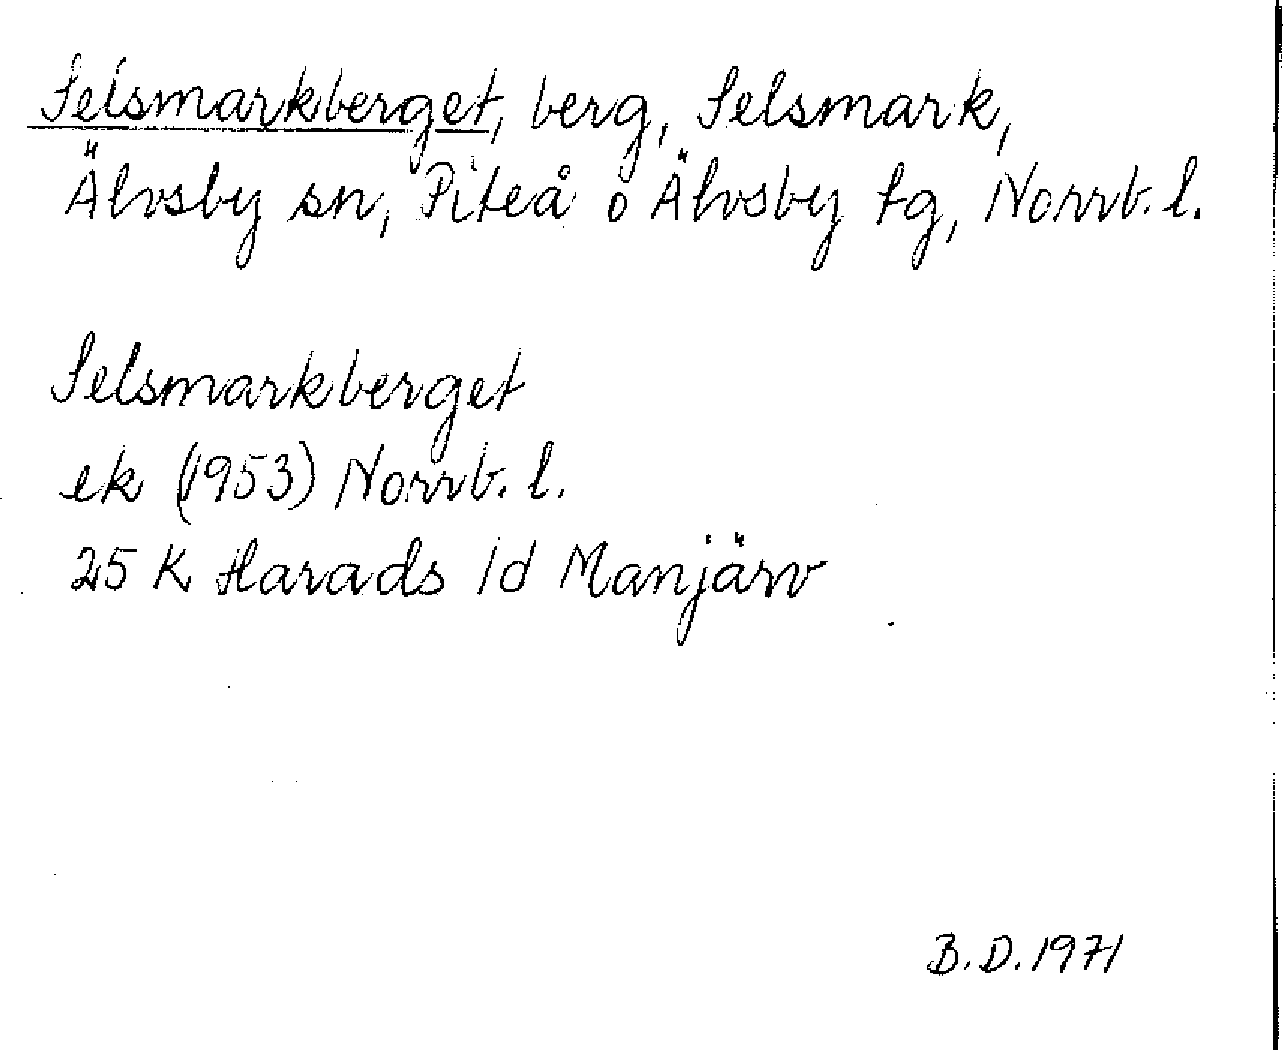 Selsmarkberget, berg, Selsmark,
Älvsby sn, Piteå o Älvsby tg, Norrb. l.
Selsmarkberget
ek (1953) Norrb. l.
25 K Harads 1d Manjärv
B.D. 1971